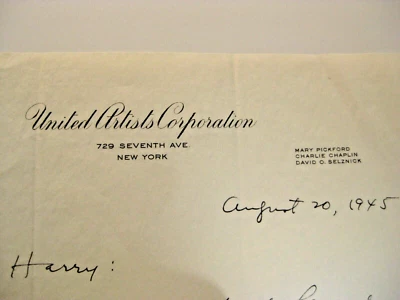 United Artists Corporation
729 SEVENTH AVE.
NEW YORK
MARY PICKFORD
CHARLIE CHAPLIN
DAVID O. SELZNICK
August 20, 1945
Harry: